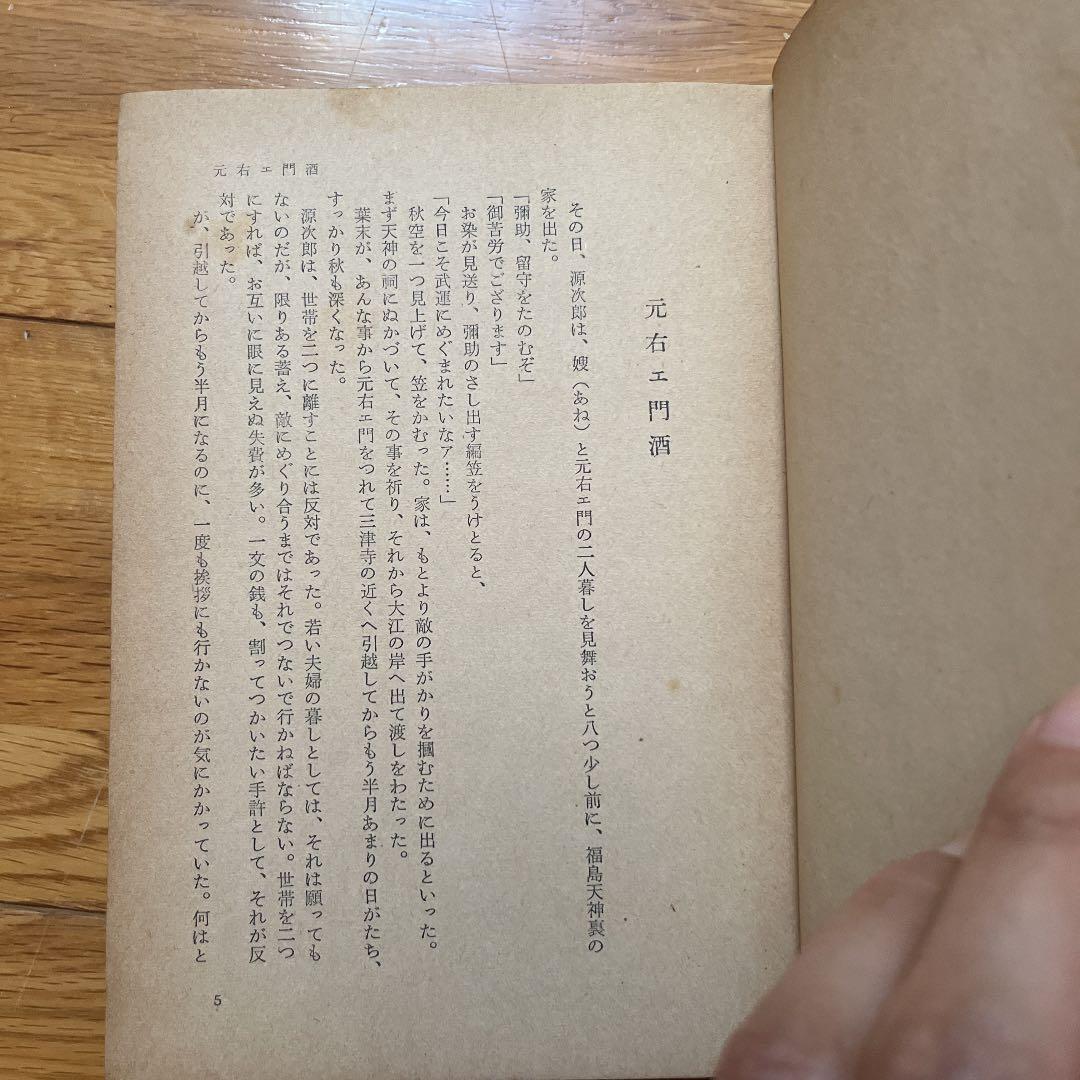 元右ェ門酒
元右ェ門酒
その日、源次郎は、嫂（あね）と元右ェ門の二人暮しを見舞おうと八つ少し前に、福島天神裏の
家を出た。
「彌助、留守をたのむぞ」
「御苦労でござります」
お染が見送り、彌助のさし出す編笠をうけとると、
「今日こそ武運にめぐまれたいなァ……」
秋空を一つ見上げて、笠をかむった。家は、もとより敵の手がかりを摑むために出るといった。
まず天神の祠にぬかづいて、その事を祈り、それから大江の岸へ出て渡しをわたった。
葉末が、あんな事から元右ェ門をつれて三津寺の近くへ引越してからもう半月あまりの日がたち、
すっかり秋も深くなった。
源次郎は、世帯を二つに離すことには反対であった。若い夫婦の暮しとしては、それは願っても
ないのだが、限りある蓄え、敵にめぐり合うまではそれでつないで行かねばならない。世帯を二つ
にすれば、お互いに眼に見えぬ失費が多い。一文の銭も、割ってつかいたい手許として、それが反
対であった。
が、引越してからもう半月になるのに、一度も挨拶にも行かないのが気にかかっていた。何はと
5